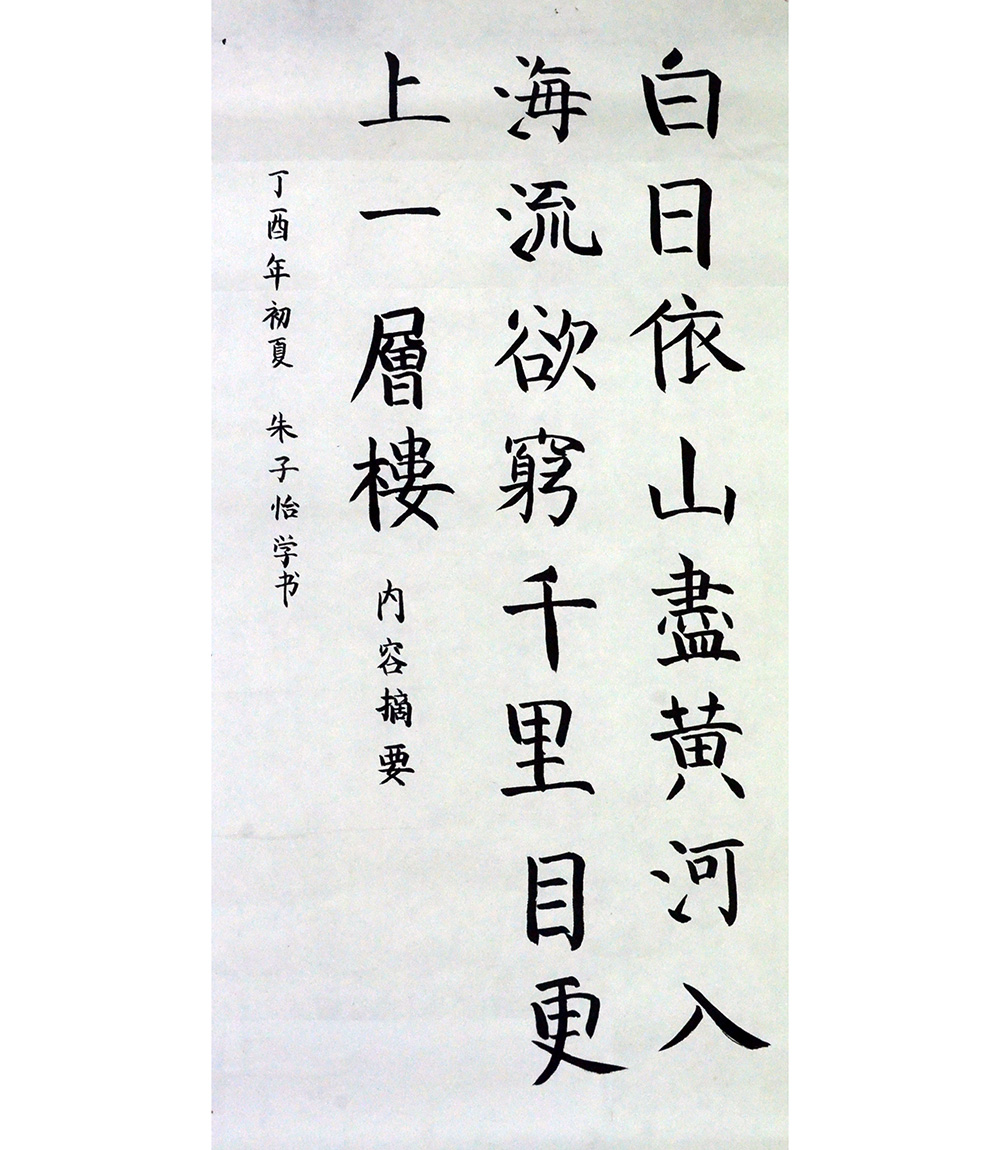 白日依山盡黄河入
海流欲窮千里目更
上一層樓 内容摘要
丁酉年初夏 朱子怡学书